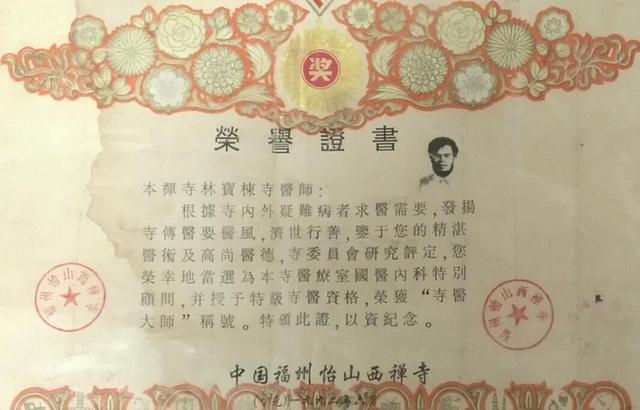 奖
榮譽證書
本禪寺林寶棟寺醫師：
根據寺內外疑難病者求醫需要，發揚
寺傳醫要醫風，濟世行善，鑒于您的精湛
醫術及高尚醫德，寺委員會研究評定，您
榮幸地當選為本寺醫療室國醫內科特別
顧問，并授予特級寺醫資格，榮獲“寺醫
大師”稱號。特頒此證，以資紀念。
福州怡山西禅寺
福州怡山西禅寺
中国福州怡山西禅寺
(公元)一九九二年